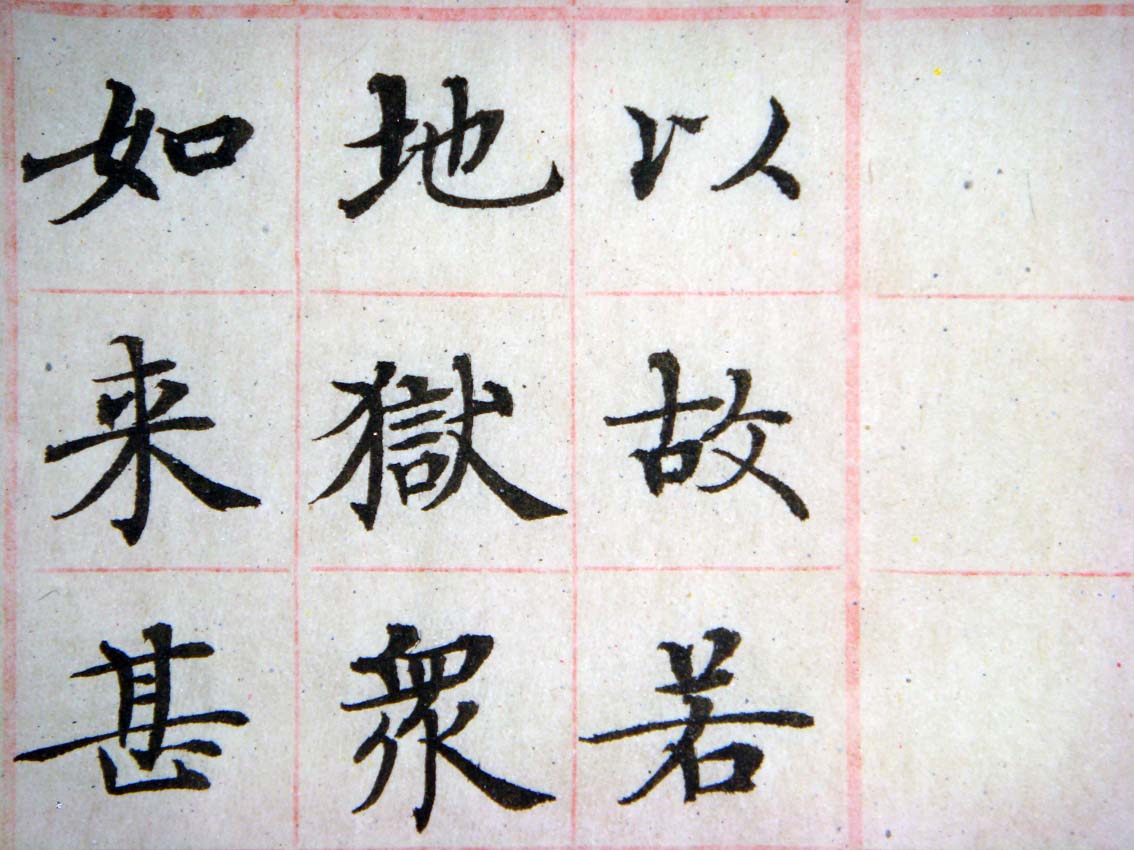 以故若
地獄眾
如来甚